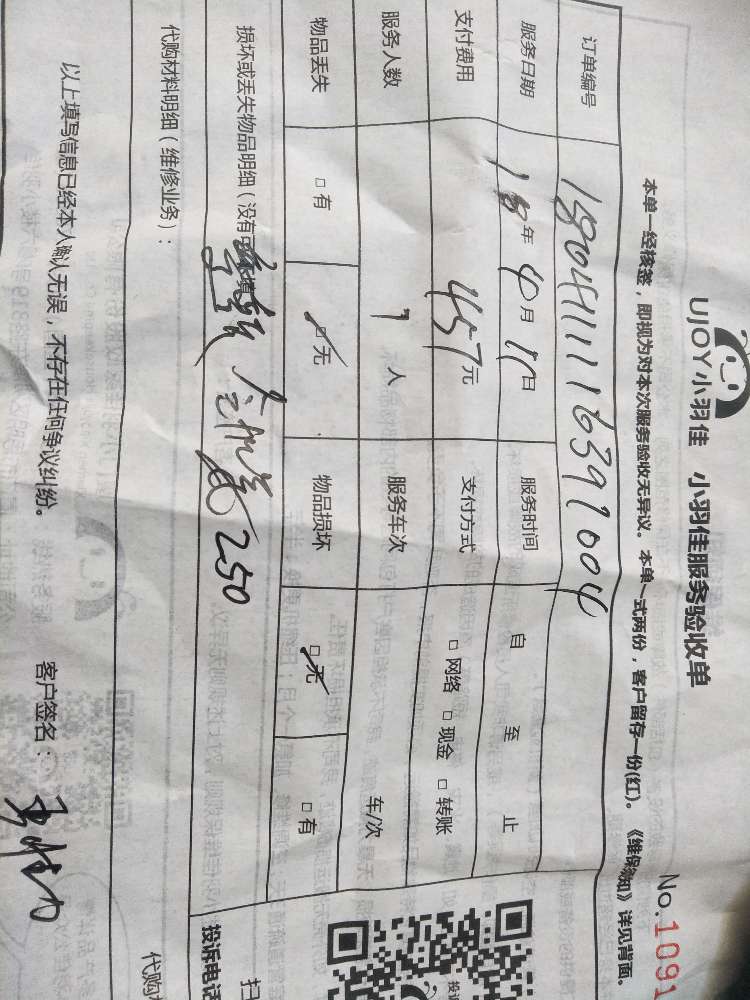 UJOY小羽佳 小羽佳服务验收单
No.1091
本单一经核签，即视为对本次服务验收无异议。本单一式两份，客户留存一份(红)。《维保须知》详见背面。
订单编号
服务日期 18年4月11日 服务时间 自 至 止
支付费用 457元 支付方式 □网络 □现金 □转账
服务人数 1人 服务车次 车/次
物品丢失 □有 □无 物品损坏 □无 □有
损坏或丢失物品明细（没有可不填
250
投诉电话
代购材料明细（维修业务）：
代购
以上填写信息已经本人确认无误，不存在任何争议纠纷。 客户签名：